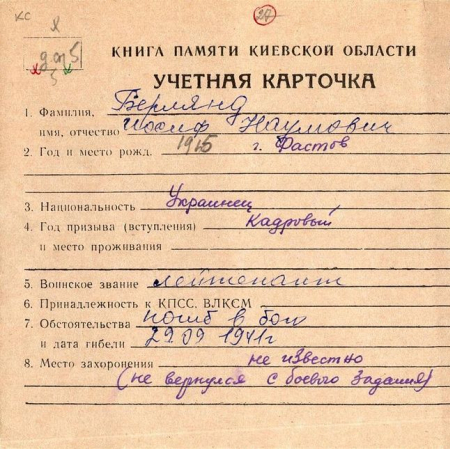 КС
24
КНИГА ПАМЯТИ КИЕВСКОЙ ОБЛАСТИ
УЧЕТНАЯ КАРТОЧКА
1. Фамилия, Берлянд
имя, отчество Иосиф Наумович
2. Год и место рожд. 1915 г. Фастов
3. Национальность Украинец
4. Год призыва (вступления) Кадровый
и место проживания
5. Воинское звание лейтенант
6. Принадлежность к КПСС, ВЛКСМ
7. Обстоятельства погиб в бою
и дата гибели 29.09 1941г
8. Место захоронения не известно
(не вернулся с боевого задания)